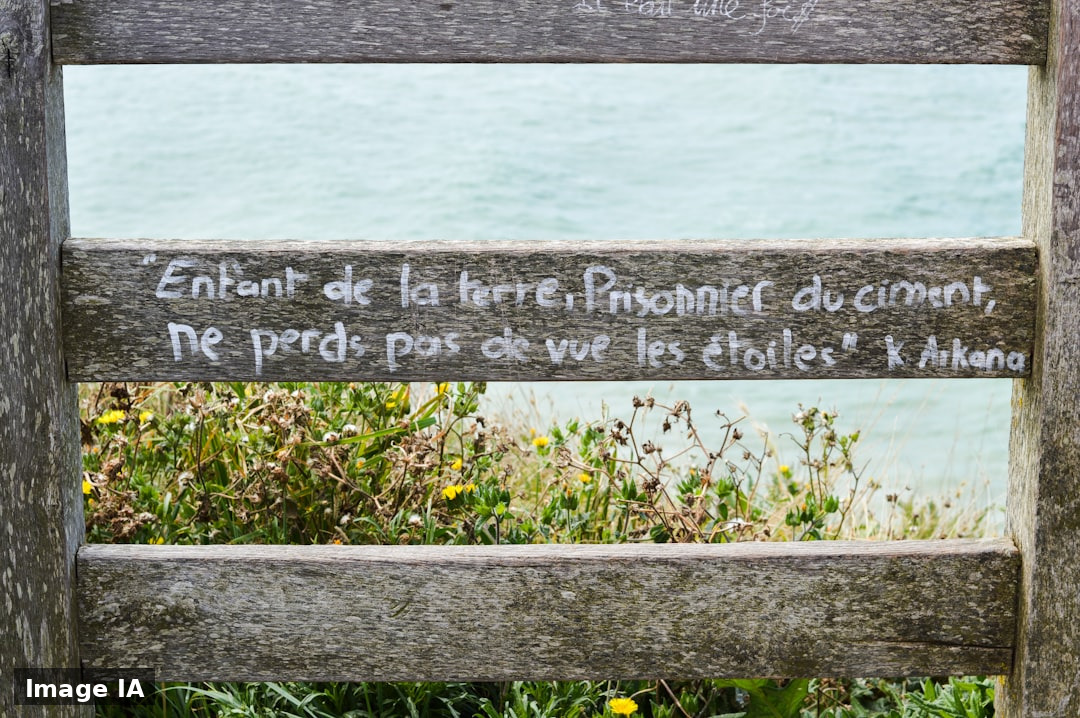 Il était une fois
"Enfant de la terre, Prisonnier du ciment,
ne perds pas de vue les étoiles" K. Arkana
Image IA